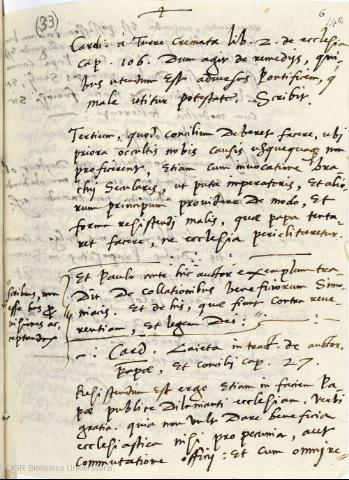 (33)
6
Cardi. à Turre Cremata lib. 2. de ecclesia
cap. 106. Dum agit de remedijs, qui-
bus utendum est adversus Pontificem, q
male utitur potestate, Scribit.
Tertium, quod concilium Deberet facere, ubi
priora occultis nobis causis usquequaq non
proficerent, Etiam cum invocatione bra-
chij Secularis, ut puta imperatoris, Et alio-
rum principum providere de modo, Et
forma resistendi malis, quæ papa tenta-
ret facere, ne ecclesia periclitaretur.
Et Paulo ante hic author exemplum tra-
dit De collationibus beneficiorum Simo-
niacis. Et de his, quæ fiunt contra reve-
rentiam, Et legem Dei:
esse his
Card. Caieta in tract. de author.
Papæ, Et concilij cap. 27.
Resistendum Est ergo Etiam in faciem Pa-
pæ publice Dilanianti ecclesiam. Verbi
gratia. quia non vult Dare beneficia
ecclesiastica nisi pro pecunia, aut
commutatione officij: Et cum omni re-
IGR Biblioteca Universitaria